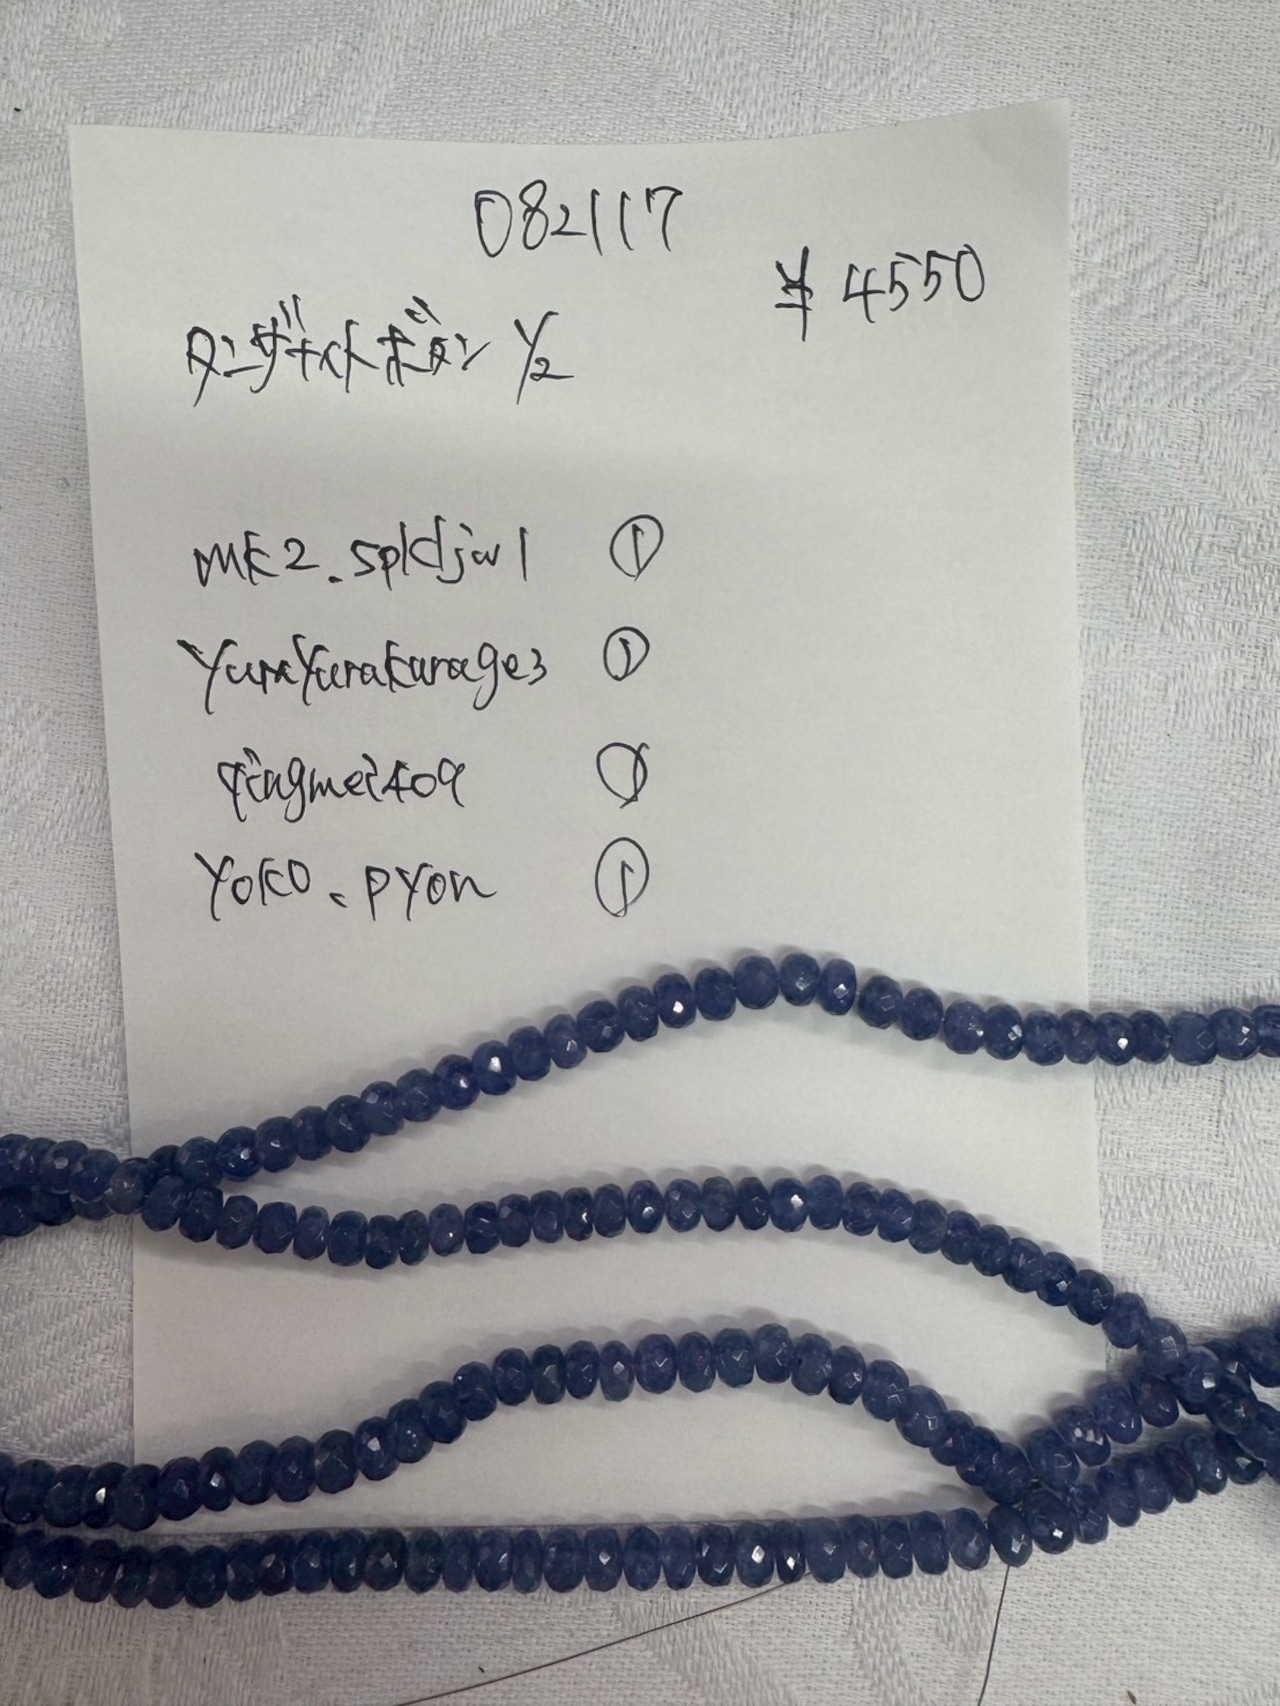 082117
¥4550
タンザナイトボタン 1/2
mk2.spldjwl ①
yurayurakurage3 ①
qingmei409 ①
yoko.pyon ①